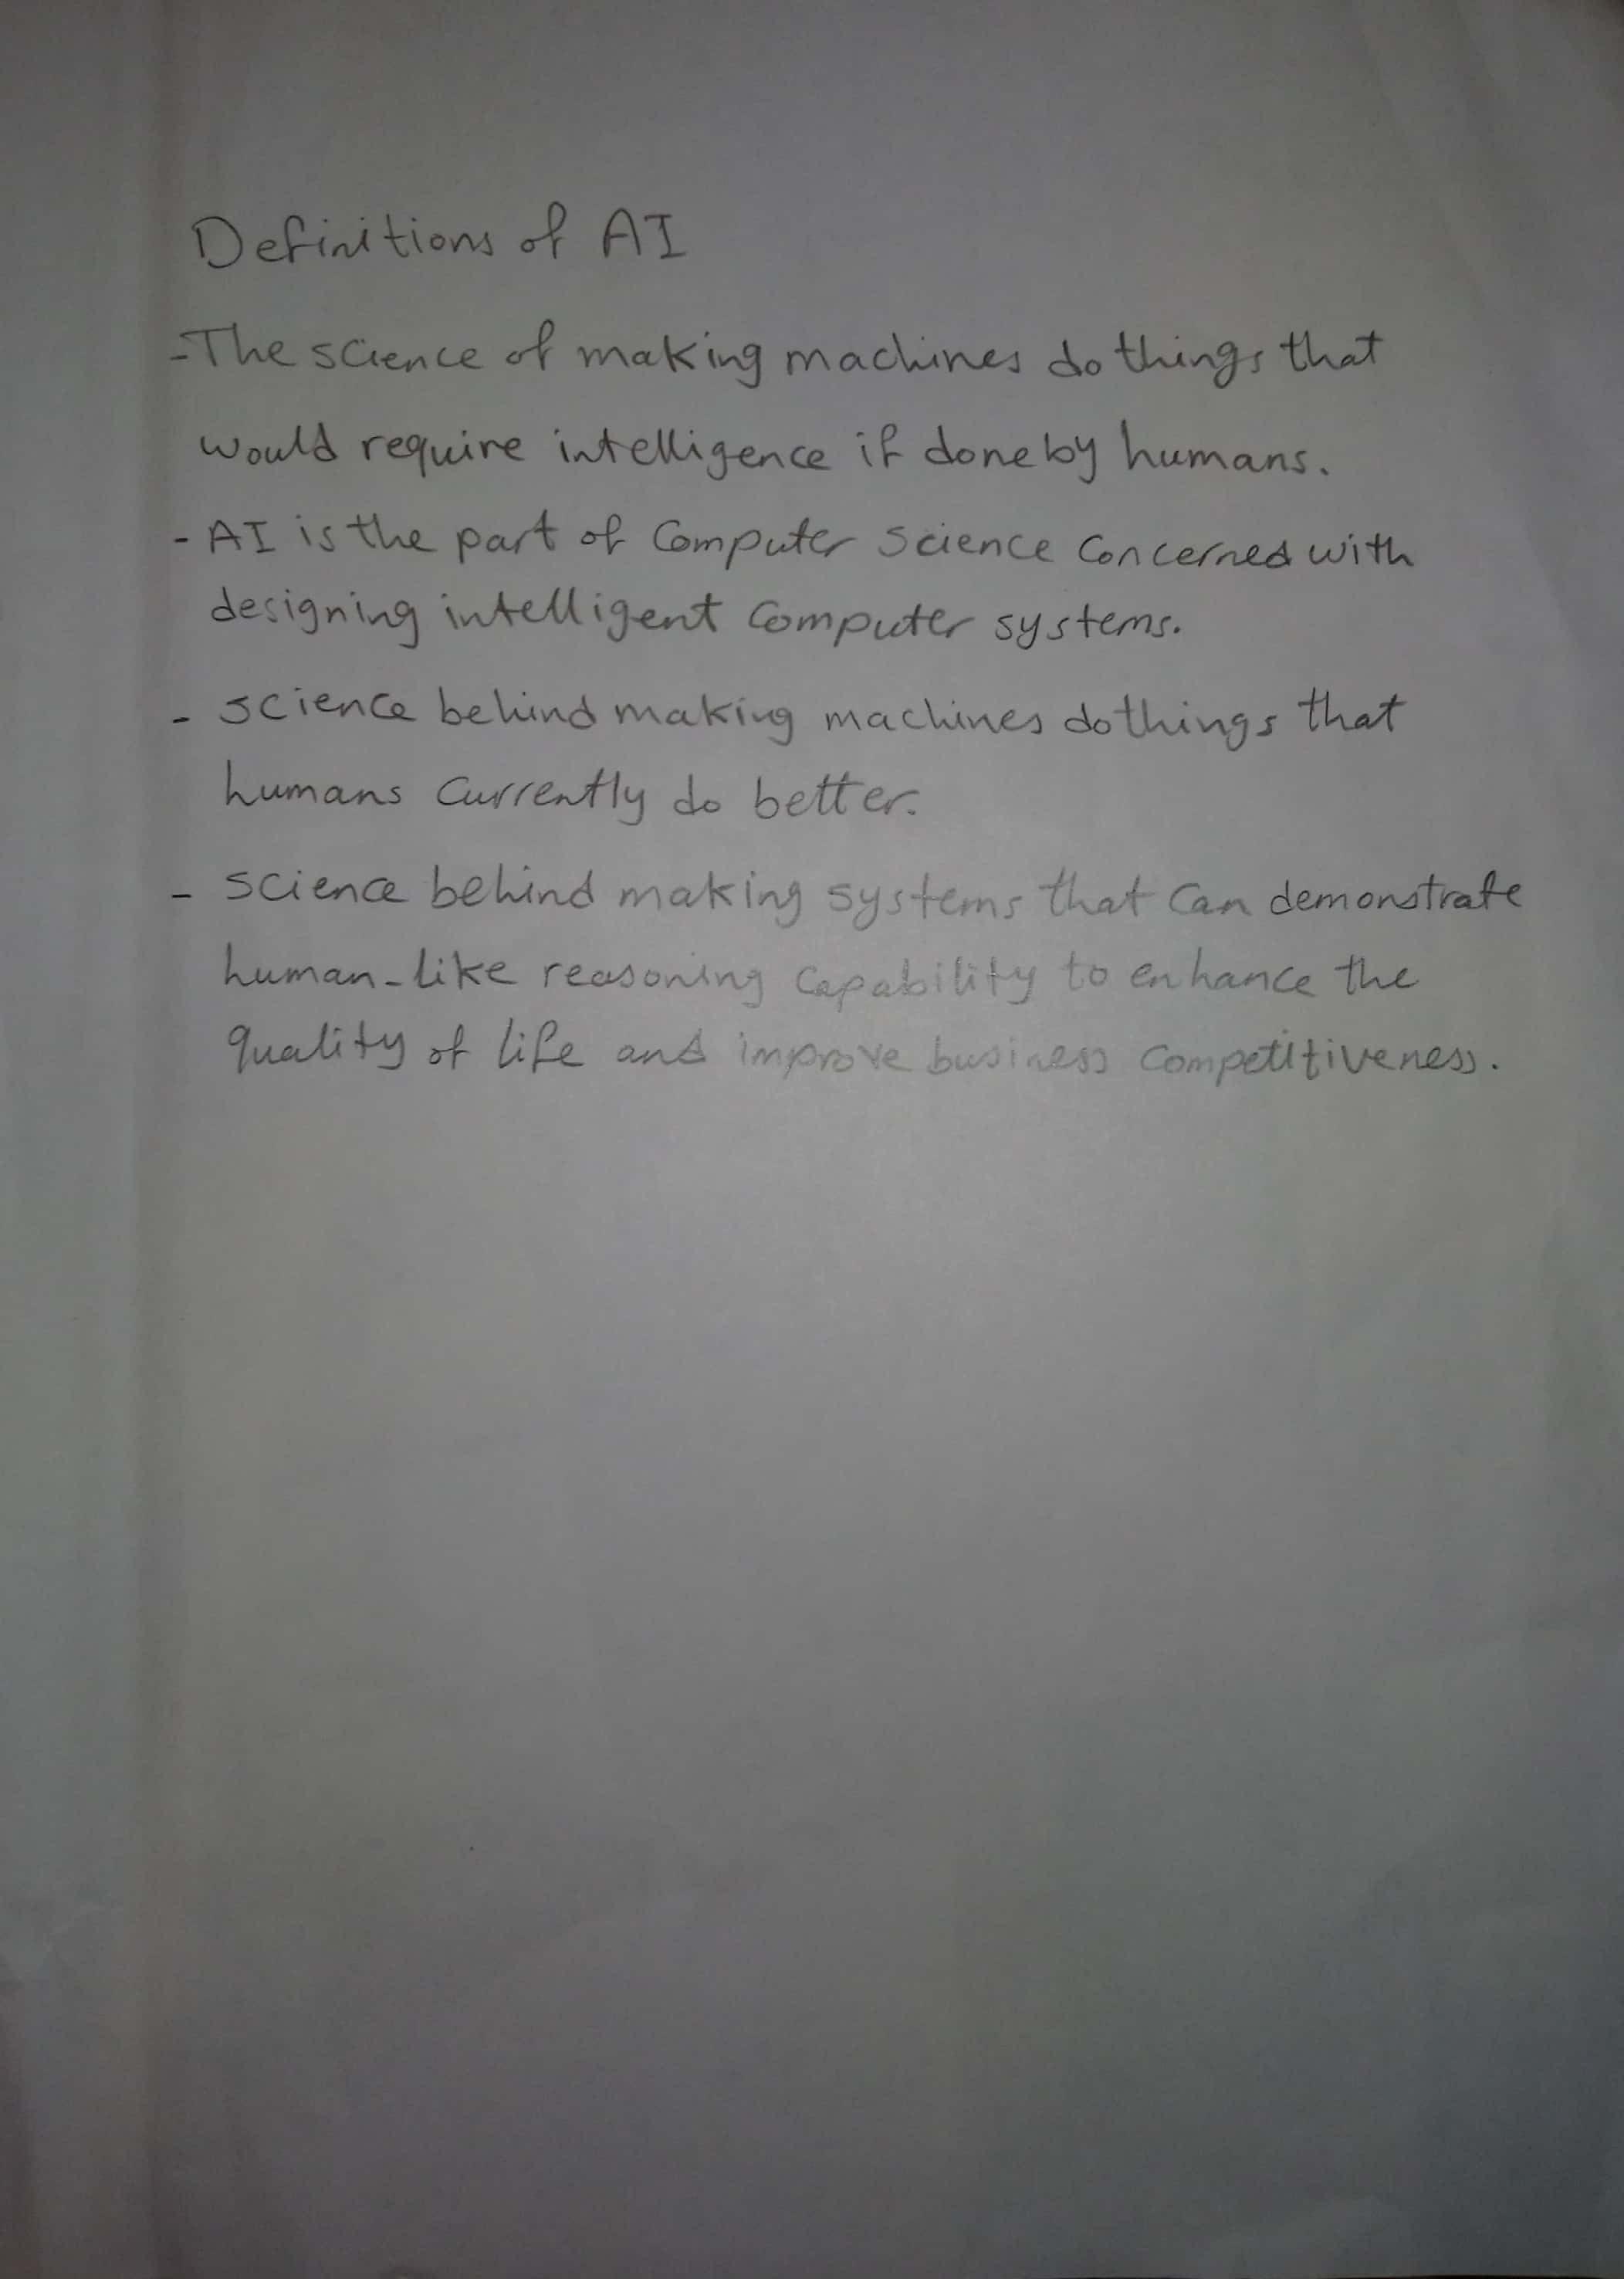 Definitions of AI
- The science of making machines do things that
would require intelligence if done by humans.
- AI is the part of Computer Science Concerned with
designing intelligent Computer systems.
- science behind making machines do things that
humans Currently do better.
- science behind making systems that Can demonstrate
human-like reasoning Capability to enhance the
quality of life and improve business Competitiveness.